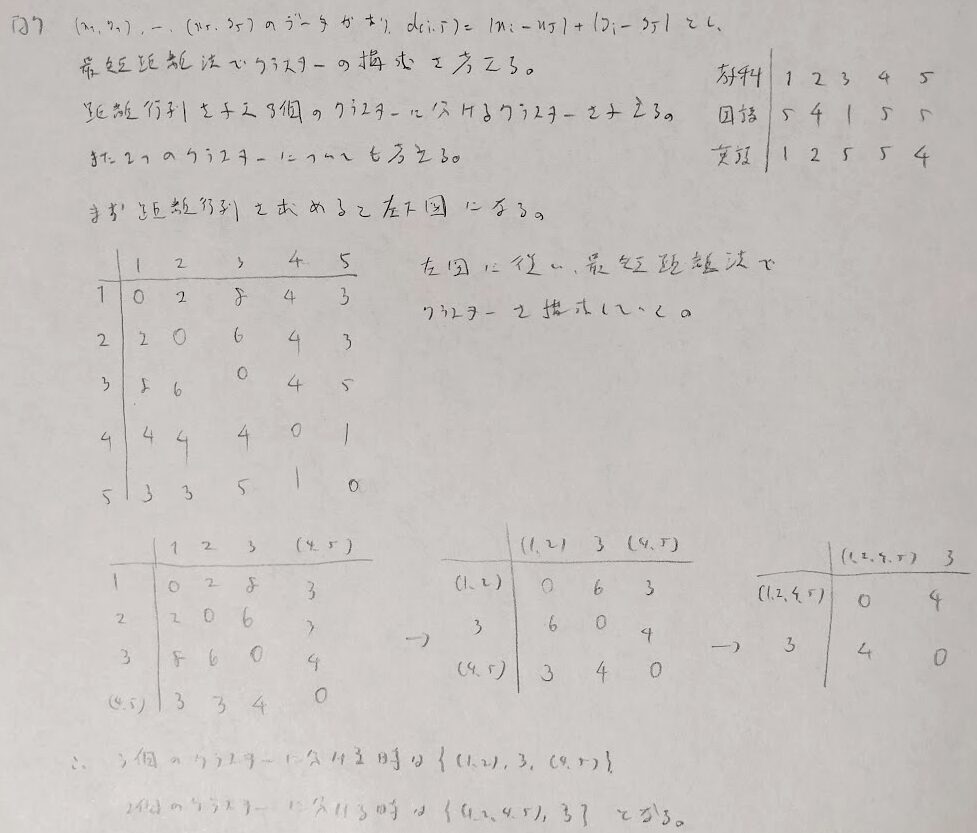 問7 (x₁, y₁), …, (x₅, y₅) のデータがあり, d(i, j) = |xi − xj| + |yi − yj| とし、
最短距離法でクラスターの構成を考える。
距離行列を与え3個のクラスターに分けるクラスターを与える。
また2つのクラスターについても考える。
教科 | 1 2 3 4 5
国語 | 5 4 1 5 5
英語 | 1 2 5 5 4
まず距離行列を求めると左下図になる。
| 1 2 3 4 5
1 | 0 2 8 4 3
2 | 2 0 6 4 3
3 | 8 6 0 4 5
4 | 4 4 4 0 1
5 | 3 3 5 1 0
左図に従い、最短距離法で
クラスターを構成していく。
| 1 2 3 (4,5)
1 | 0 2 8 3
2 | 2 0 6 3
3 | 8 6 0 4
(4,5) | 3 3 4 0
→
| (1,2) 3 (4,5)
(1,2) | 0 6 3
3 | 6 0 4
(4,5) | 3 4 0
→
| (1,2,4,5) 3
(1,2,4,5) | 0 4
3 | 4 0
∴ 3個のクラスターに分ける時は {(1,2), 3, (4,5)}
2個のクラスターに分ける時は {(1,2,4,5), 3} となる。